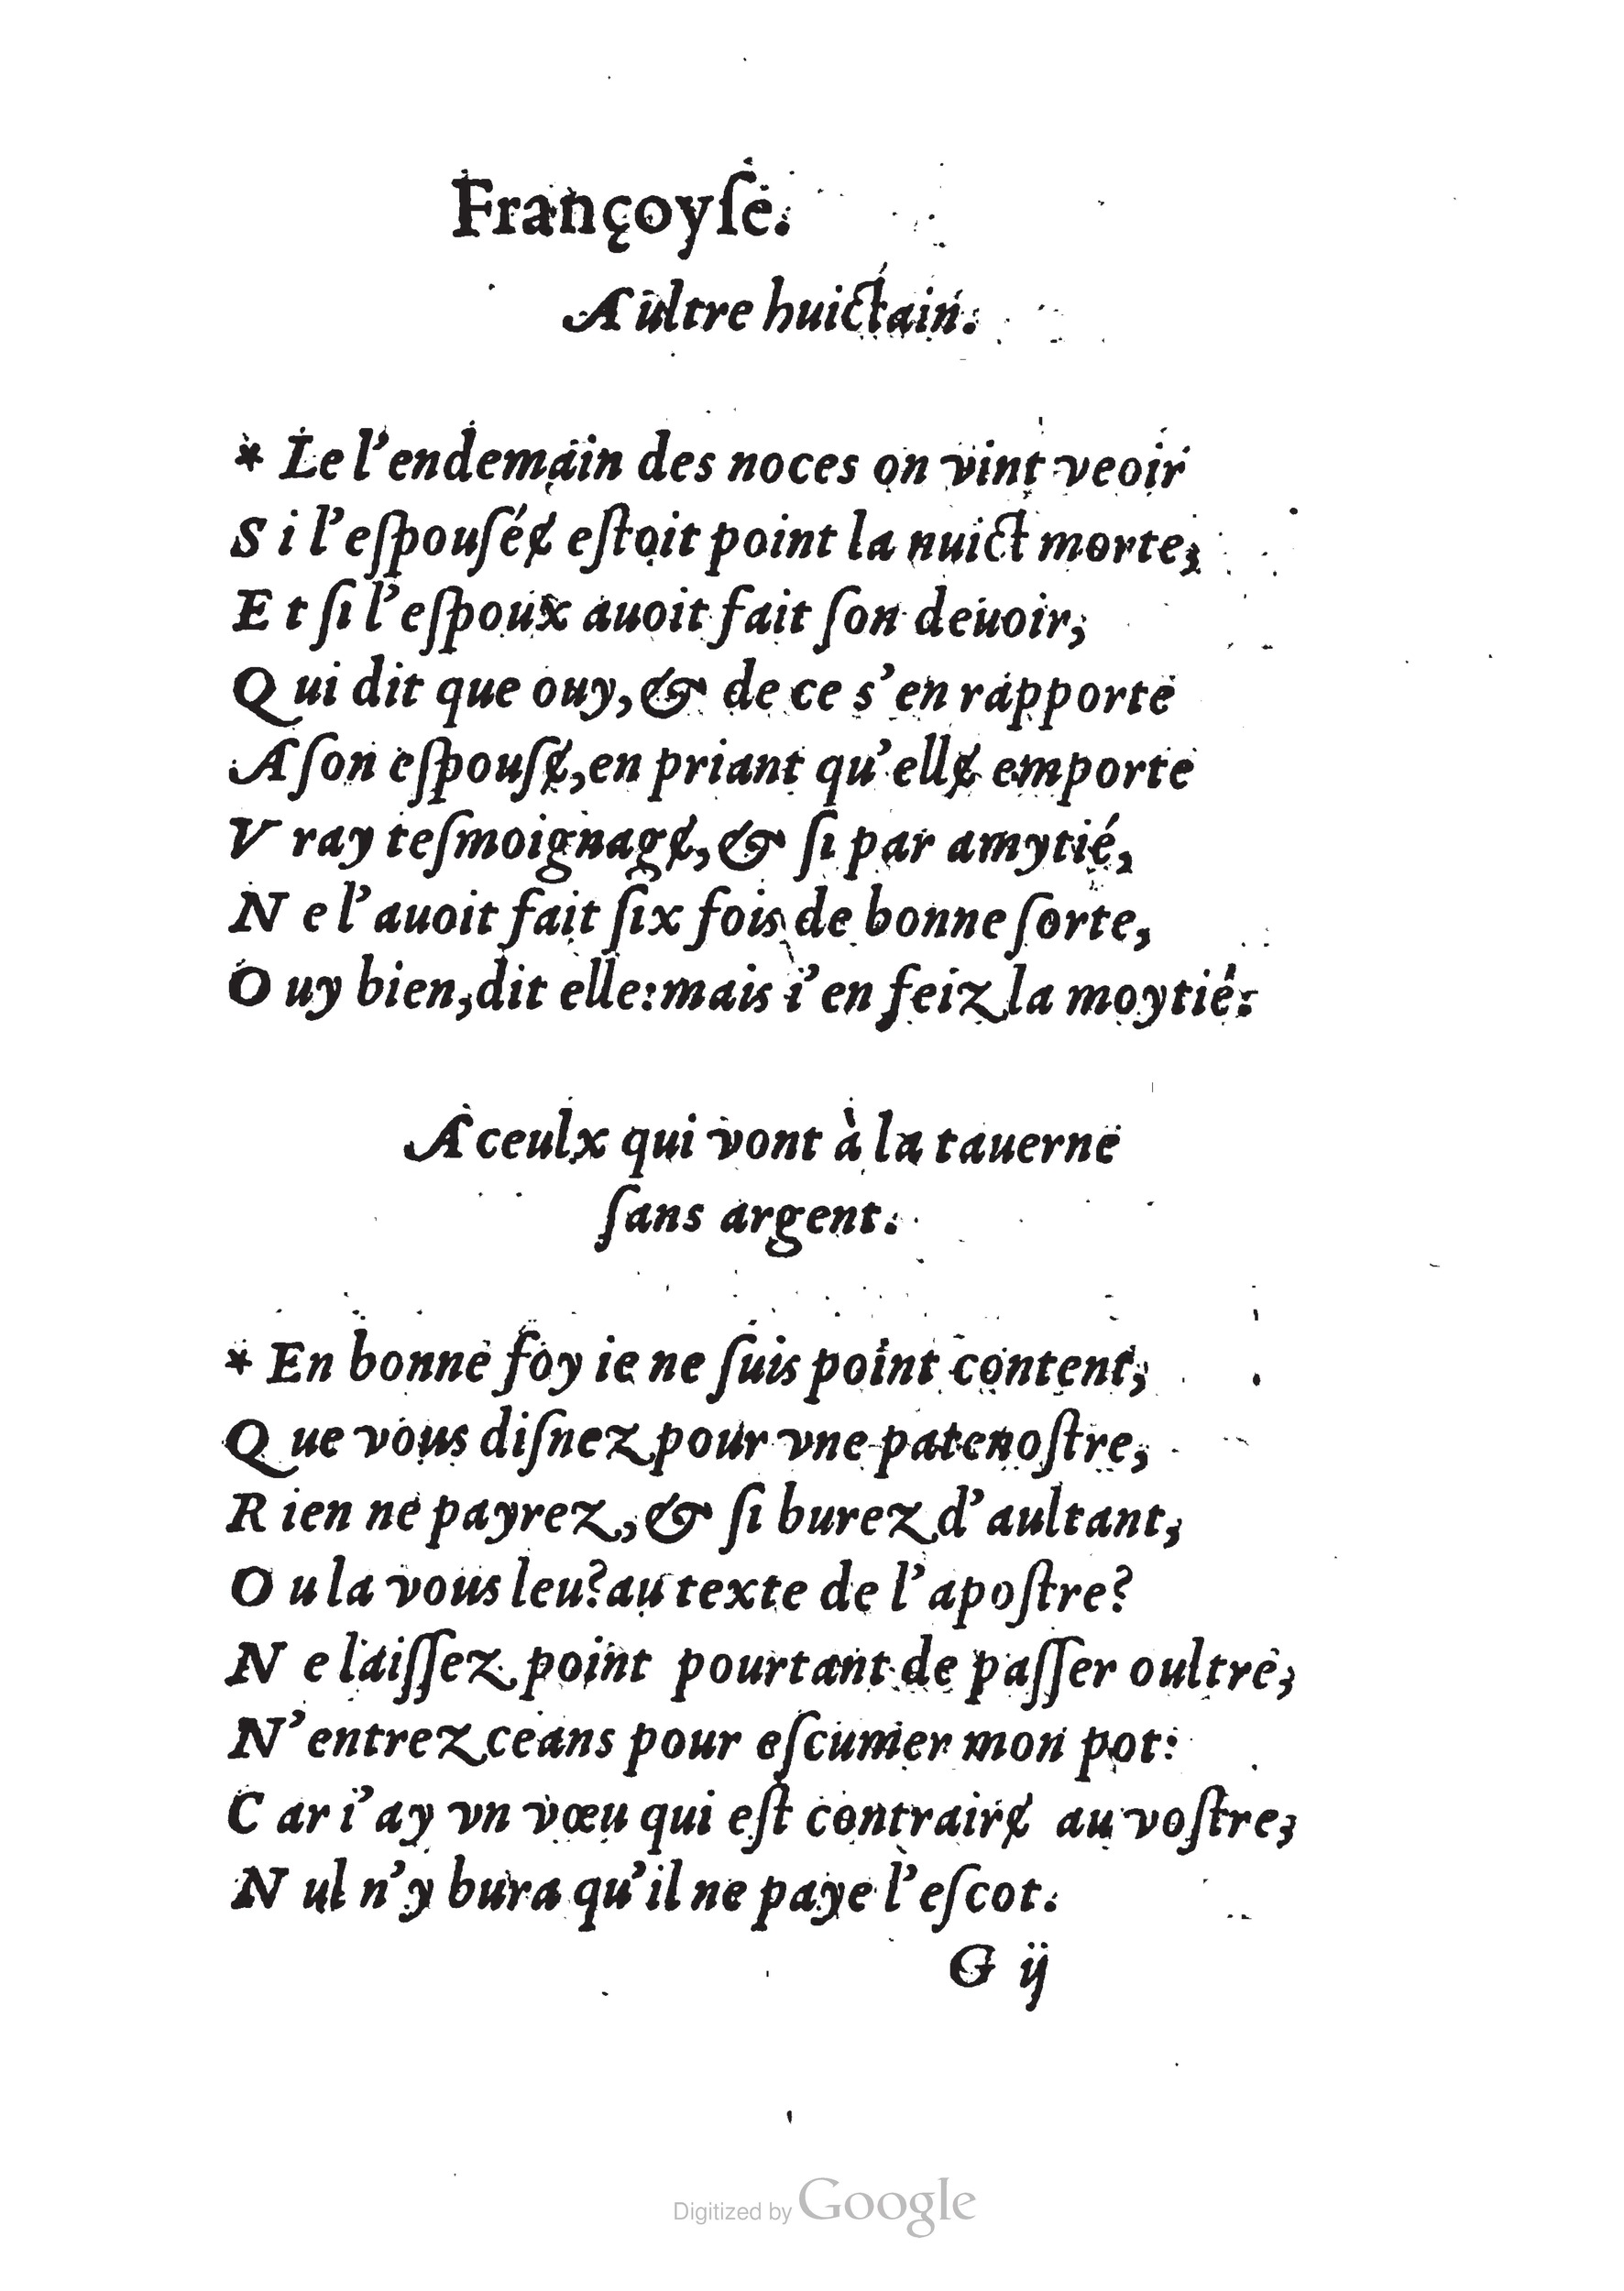 Françoyſe.
Aultre huictain.
* Le l’endemain des noces on vint veoir
S i l’eſpouſéɇ eſtoit point la nuict morte,
E t ſi l’eſpoux auoit fait ſon deuoir,
Q ui dit que ouy, & de ce s’en rapporte
A ſon eſpouſɇ, en priant qu’ellɇ emporte
V ray teſmoignagɇ, & ſi par amytié,
N e l’auoit fait ſix fois de bonne ſorte,
O uy bien, dit elle: mais i’en feiz la moytié.
A ceulx qui vont à la tauerne
ſans argent.
* En bonne foy ie ne ſuis point content,
Q ue vous diſnez pour vne patenoſtre,
R ien ne payrez, & ſi burez d’aultant,
O u la vous leu? au texte de l’apoſtre?
N e laiſſez point pourtant de paſſer oultre,
N’entrez ceans pour eſcumer mon pot:
C ar i’ay vn vœu qui eſt contrairɇ au voſtre,
N ul n’y bura qu’il ne paye l’eſcot.
G ij
Digitized by Google